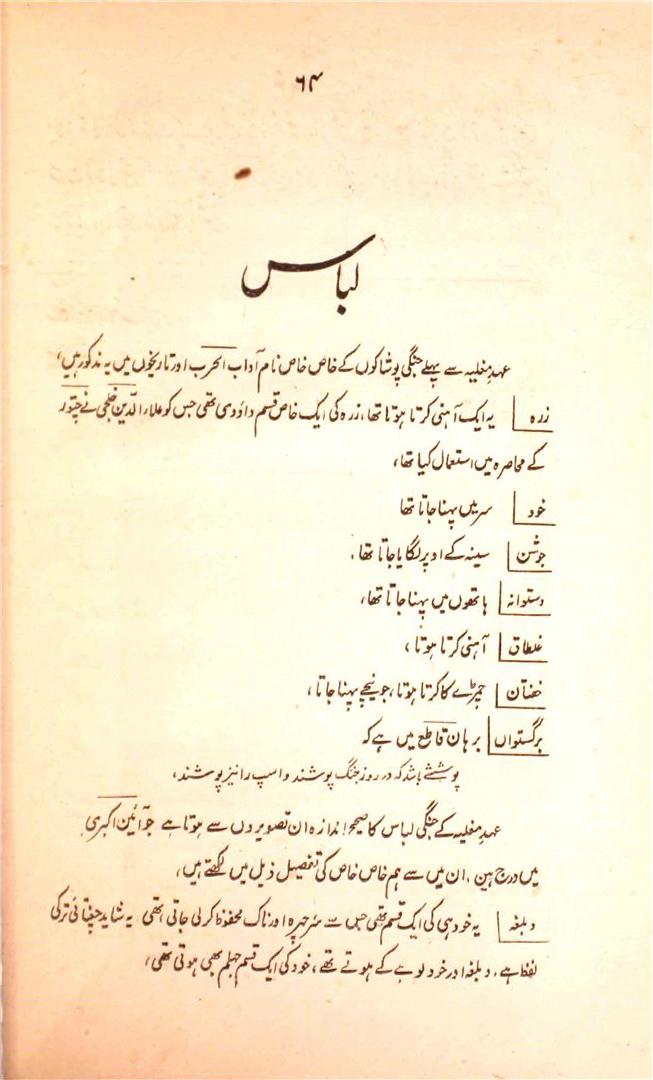 ۶۴
لباس
عہد مغلیہ سے پہلے جنگی پوشاکوں کے خاص خاص نام آداب الحرب اور تاریخوں میں یہ مذکور ہیں،
زرہ یہ ایک آہنی کرتا ہوتا تھا، زرہ کی ایک خاص قسم داؤدی تھی جس کو علاء الدین خلجی نے چتور
کے محاصرہ میں استعمال کیا تھا،
خود سر میں پہنا جاتا تھا
جوشن سینہ کے اوپر لگایا جاتا تھا،
دستوانہ ہاتھوں میں پہنا جاتا تھا،
غلطاق آہنی کرتا ہوتا،
خفتان چمڑے کا کرتا ہوتا، جو نیچے پہنا جاتا،
برگستواں برہان قاطع میں ہے کہ
پوششے باشد کہ در روز جنگ پوشند و اسپ را نیز پوشند،
عہد مغلیہ کے جنگی لباس کا صحیح اندازہ ان تصویروں سے ہوتا ہے جو آئین اکبری
میں درج ہین، ان میں سے ہم خاص خاص کی تفصیل ذیل میں لکھتے ہیں،
دبلغہ یہ خود ہی کی ایک قسم تھی جس سے سر چہرہ اور ناک محفوظ کر لی جاتی تھی یہ شاید چغتائی ترکی
لفظ ہے، دبلغہ اور خود لوہے کے ہوتے تھے، خود کی ایک قسم جہلم بھی ہوتی تھی،